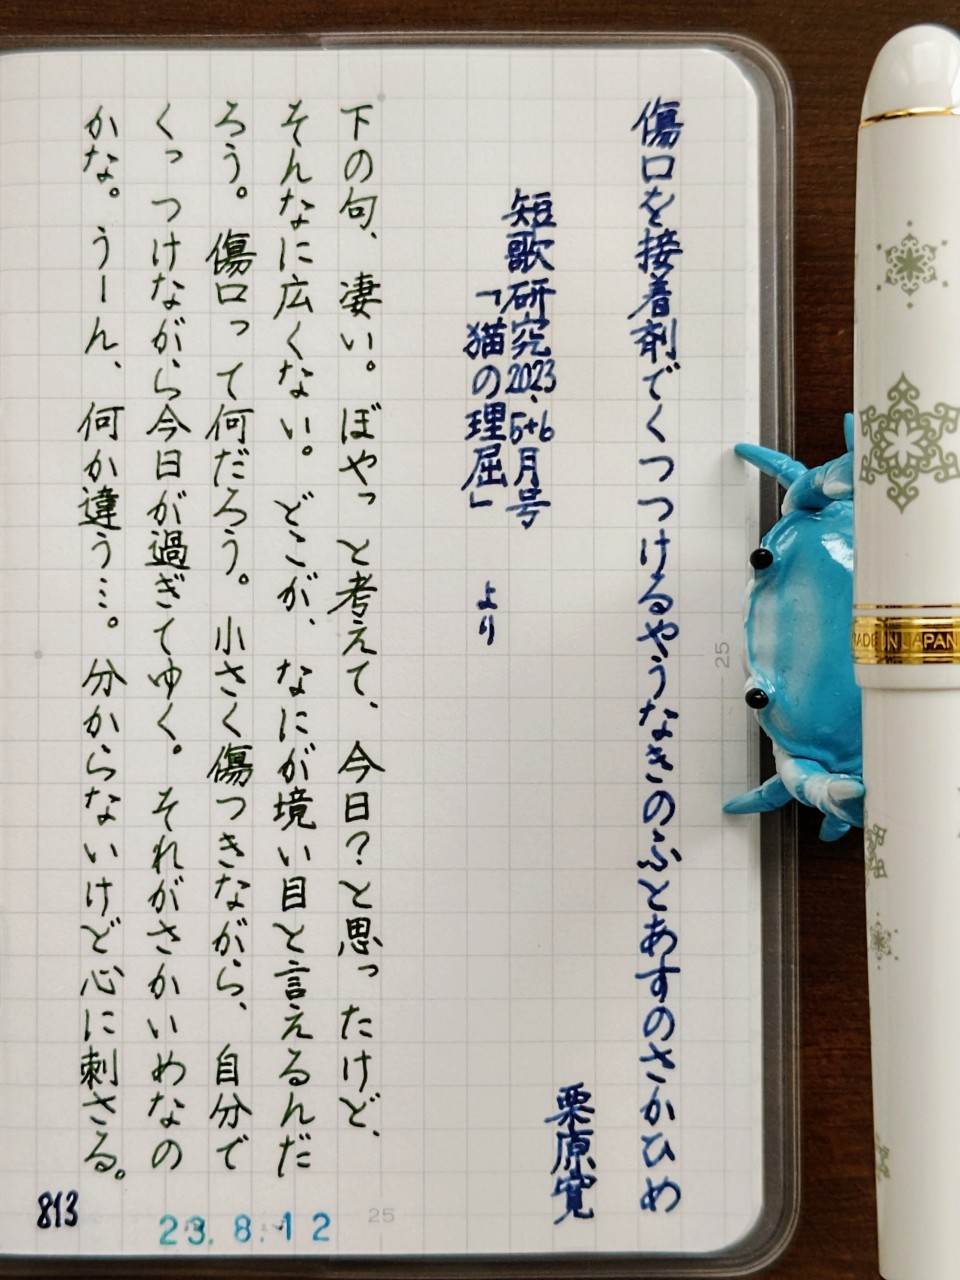 傷口を接着剤でくつつけるやうなきのふとあすのさかひめ
栗原寛
短歌研究2023.5+6月号
「猫の理屈」より
下の句、凄い。ぼやっと考えて、今日？と思ったけど、
そんなに広くない。どこが、なにが境い目と言えるんだ
ろう。傷口って何だろう。小さく傷つきながら、自分で
くっつけながら今日が過ぎてゆく。それがさかいめなの
かな。うーん、何か違う…。分からないけど心に刺さる。
813
23.8.12
25
25
MADE IN JAPAN